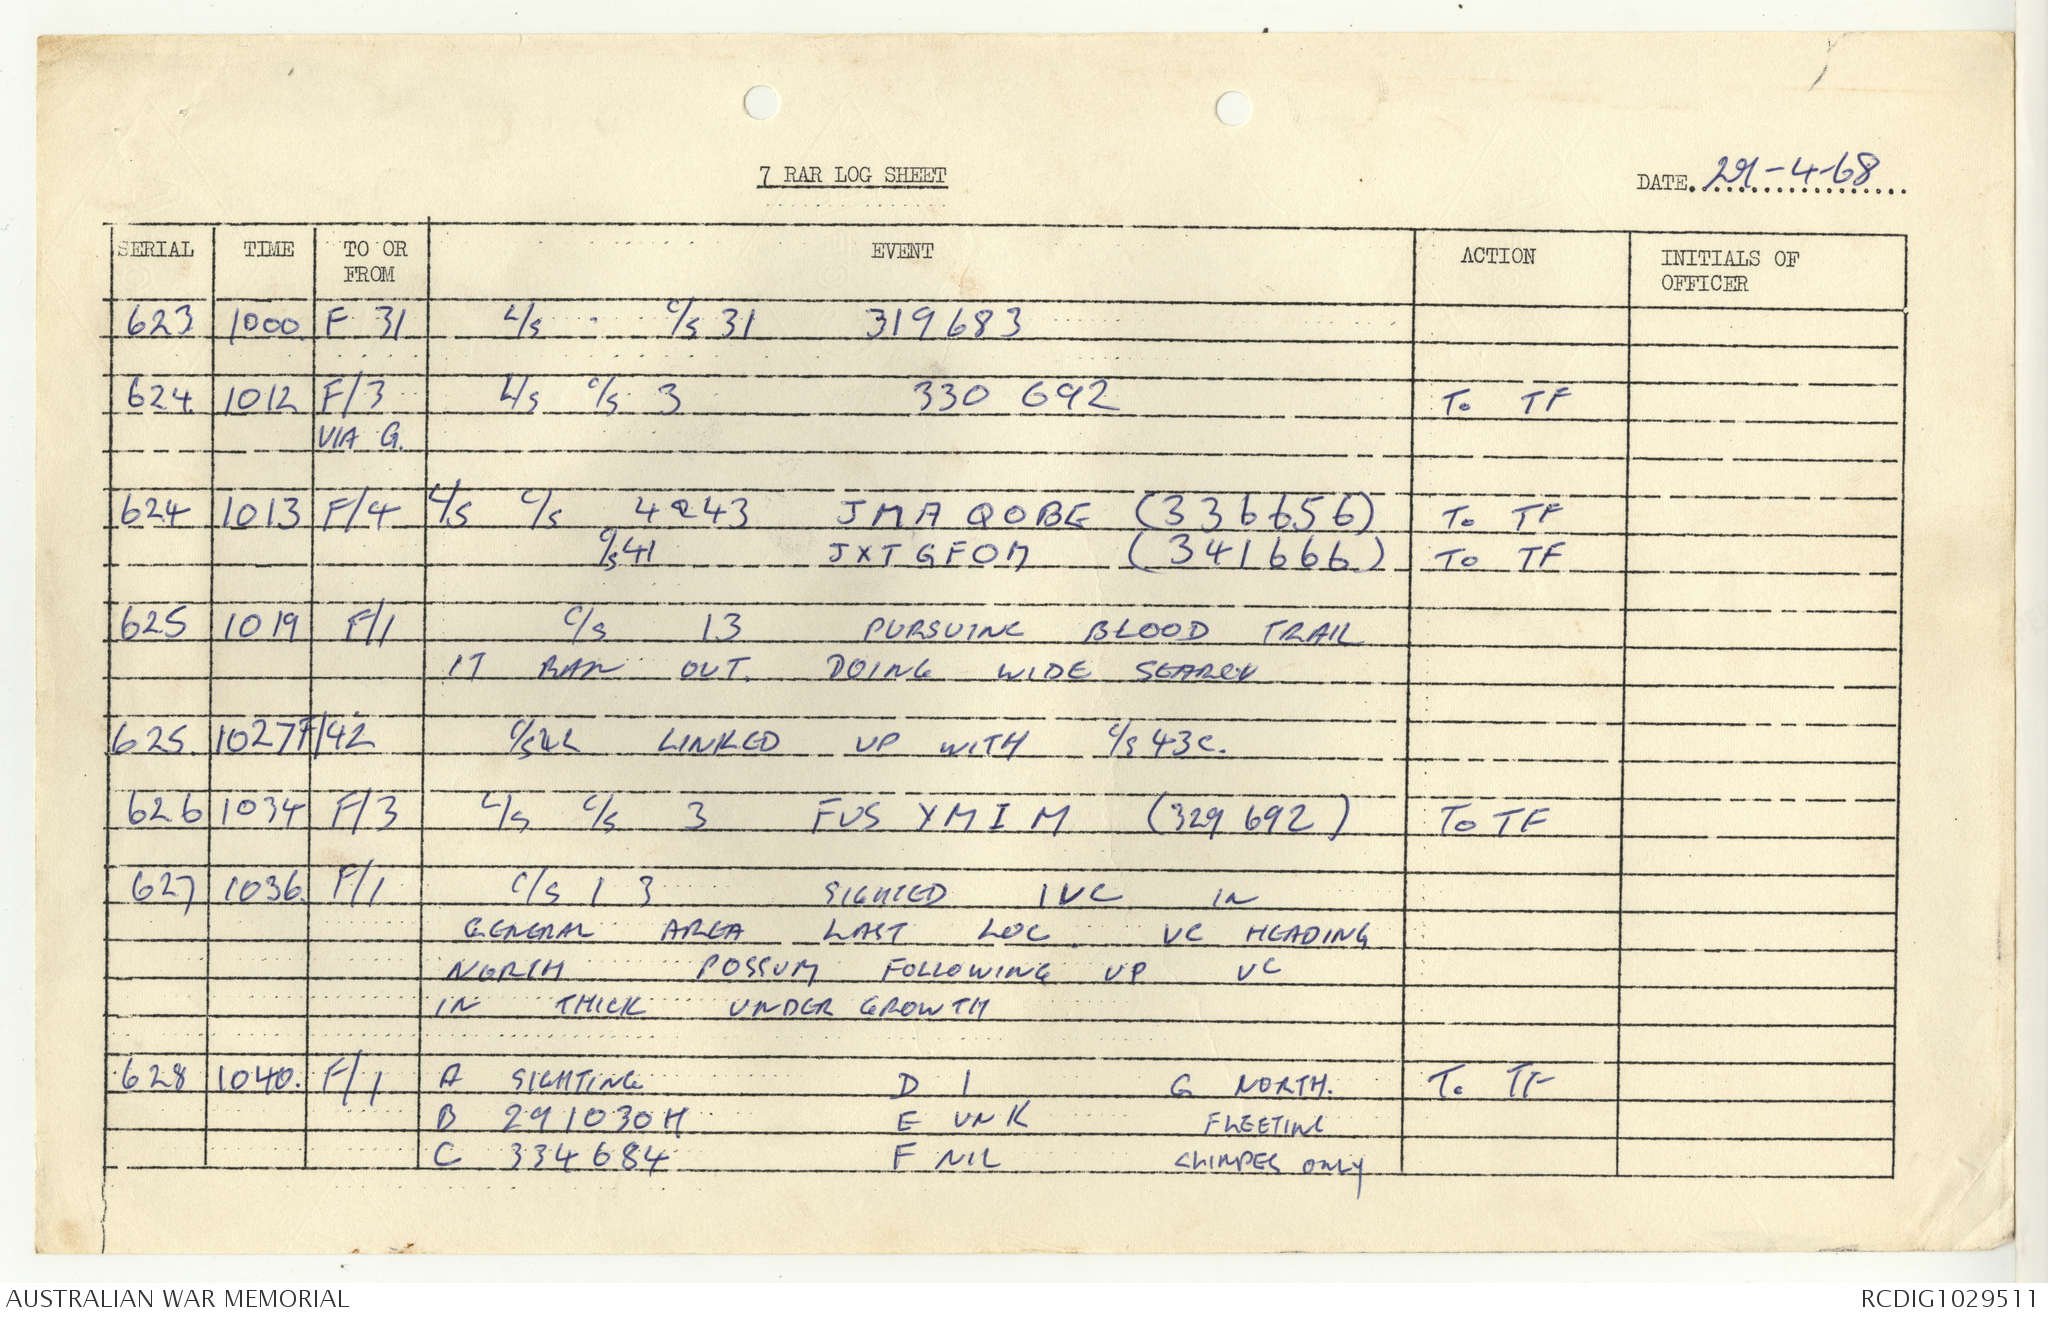 7 RAR LOG SHEET
DATE. 29-4-68
SERIAL TIME TO OR FROM EVENT ACTION INITIALS OF OFFICER
623 1000. F 31 L/S C/S 31 319683
624 1012 F/3 L/S C/S 3 330 692 To TF
VIA G.
624 1013 F/4 L/S C/S 4 & 43 JMA QOBE (336656) To TF
C/S 41 JXT GFOM (341666.) To TF
625 1019 F/1 C/S 13 PURSUING BLOOD TRAIL
IT RAN OUT. DOING WIDE SEARCH
625. 1027 F/42 C/S 42 LINKED UP WITH C/S 43C.
626 1034 F/3 L/S C/S 3 FUS YMIM (329 692) To TF
627 1036. F/1 C/S 13 SIGHTED 1 VC IN
GENERAL AREA LAST LOC VC HEADING
NORTH POSSUM FOLLOWING UP VC
IN THICK UNDER GROWTH
628 1040. F/1 A SIGHTING D 1 G NORTH. To TF
B 291030H E UNK FLEETING
C 334684 F NIL GLIMPES ONLY
AUSTRALIAN WAR MEMORIAL RCDIG1029511